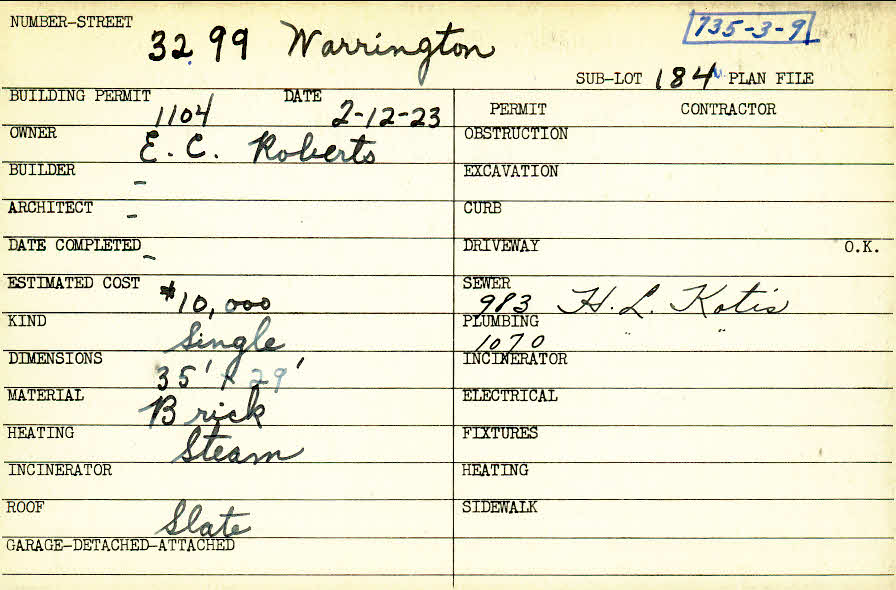 NUMBER-STREET 3299 Warrington 735-3-9
SUB-LOT 184 PLAN FILE
BUILDING PERMIT 1104 DATE 2-12-23
OWNER E. C. Roberts
BUILDER -
ARCHITECT -
DATE COMPLETED -
ESTIMATED COST $10,000
KIND Single
DIMENSIONS 35' x 29'
MATERIAL Brick
HEATING Steam
INCINERATOR
ROOF Slate
GARAGE-DETACHED-ATTACHED
PERMIT CONTRACTOR
OBSTRUCTION
EXCAVATION
CURB
DRIVEWAY O.K.
SEWER 983 H. L. Kotis
PLUMBING 1070 " "
INCINERATOR
ELECTRICAL
FIXTURES
HEATING
SIDEWALK